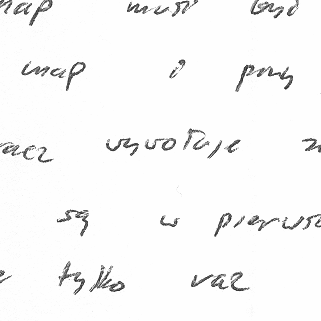 map musi być
map i przy
racz wywołuje z
są w pierwsz
tylko raz